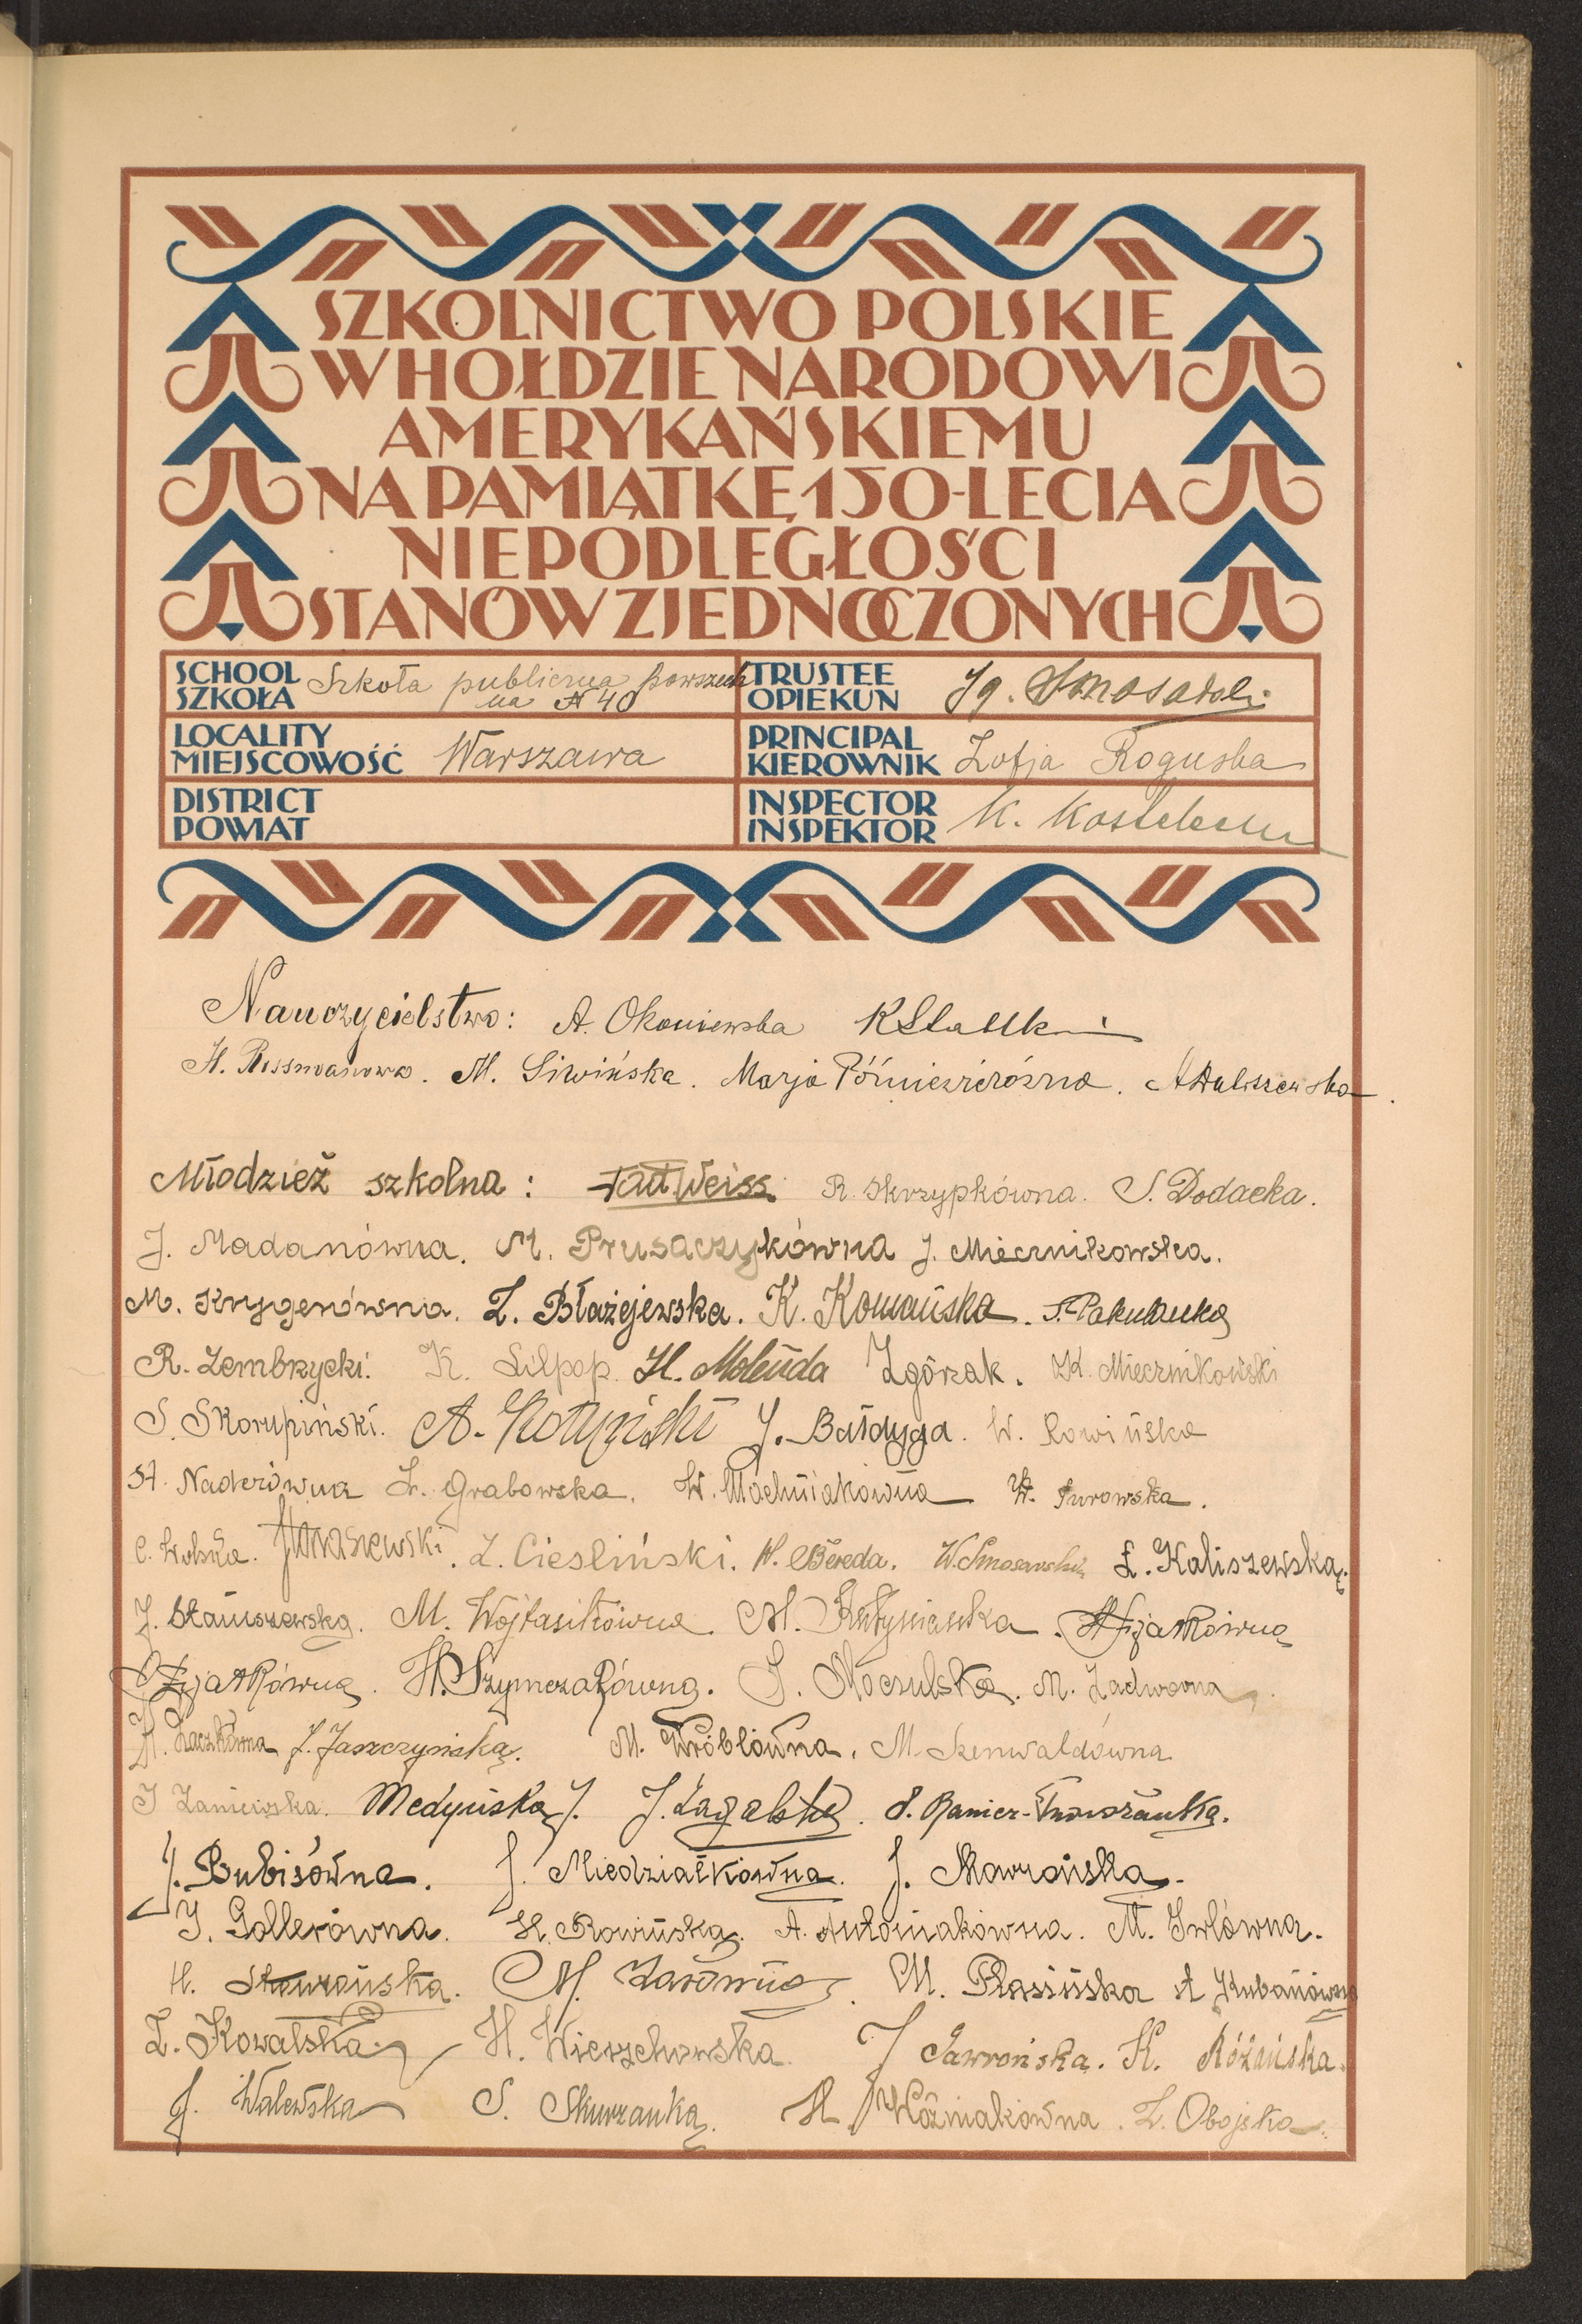 SZKOLNICTWO POLSKIE
W HOŁDZIE NARODOWI
AMERYKAŃSKIEMU
NA PAMIĄTKĘ 150-LECIA
NIEPODLEGŁOŚCI
STANÓW ZJEDNOCZONYCH
SCHOOL
SZKOŁA Szkoła publiczna powszech
na № 40
TRUSTEE
OPIEKUN Ig. Smosarski
LOCALITY
MIEJSCOWOŚĆ Warszawa
PRINCIPAL
KIEROWNIK Zofja Roguska
DISTRICT
POWIAT
INSPECTOR
INSPEKTOR K.
Nauczycielstwo: A. Okoniewska
H. Rossmanowa. M. Siwińska. Marja
Młodzież szkolna: Weiss R. Skrzypkówna. S. Dodacka.
J. Madanówna. M. Prusaczykówna J. Miecznikowska.
M. Krygerówna. Z. Błażejewska. K. Komańska.
R. Zembrzycki. K. Lilpop. H. Molenda Zgórzak. K. Miecznikowski
S. Skorupiński. A. J. Bałdyga. W. Rowińska
St. Naderówna Z. Grabowska. W. Moehniakówna W. Jurowska.
C. Wolska. Z. Cieśliński. H. Bereda. W. Smosarski Ł. Kaliszewska.
J. Staniszewska. M. Wojtasikówna. M. Fijałkówna
Fijałkówna. H. Szymczakówna. J. Moczulska. M. Zadworna
J. Jaszczyńska. M. Wróblówna. M. Szenwaldówna
J Zaniewska. Medyńska J. J. Zagalska.
J. Bubisówna. J. Miedziałkówna. J. Skawrońska.
J. Gollerówna. H. Rowińska. A. Antoniakówna. M. Iwlówna.
H. Skowrońska. M. M. Płasińska A Kubanówna
Z. Kowalska. H. Wierzchowska. J Jaworońska. K. Różańska.
J. Walewska S. Skurzanka. H Woźniakówna. Z. Obojska.